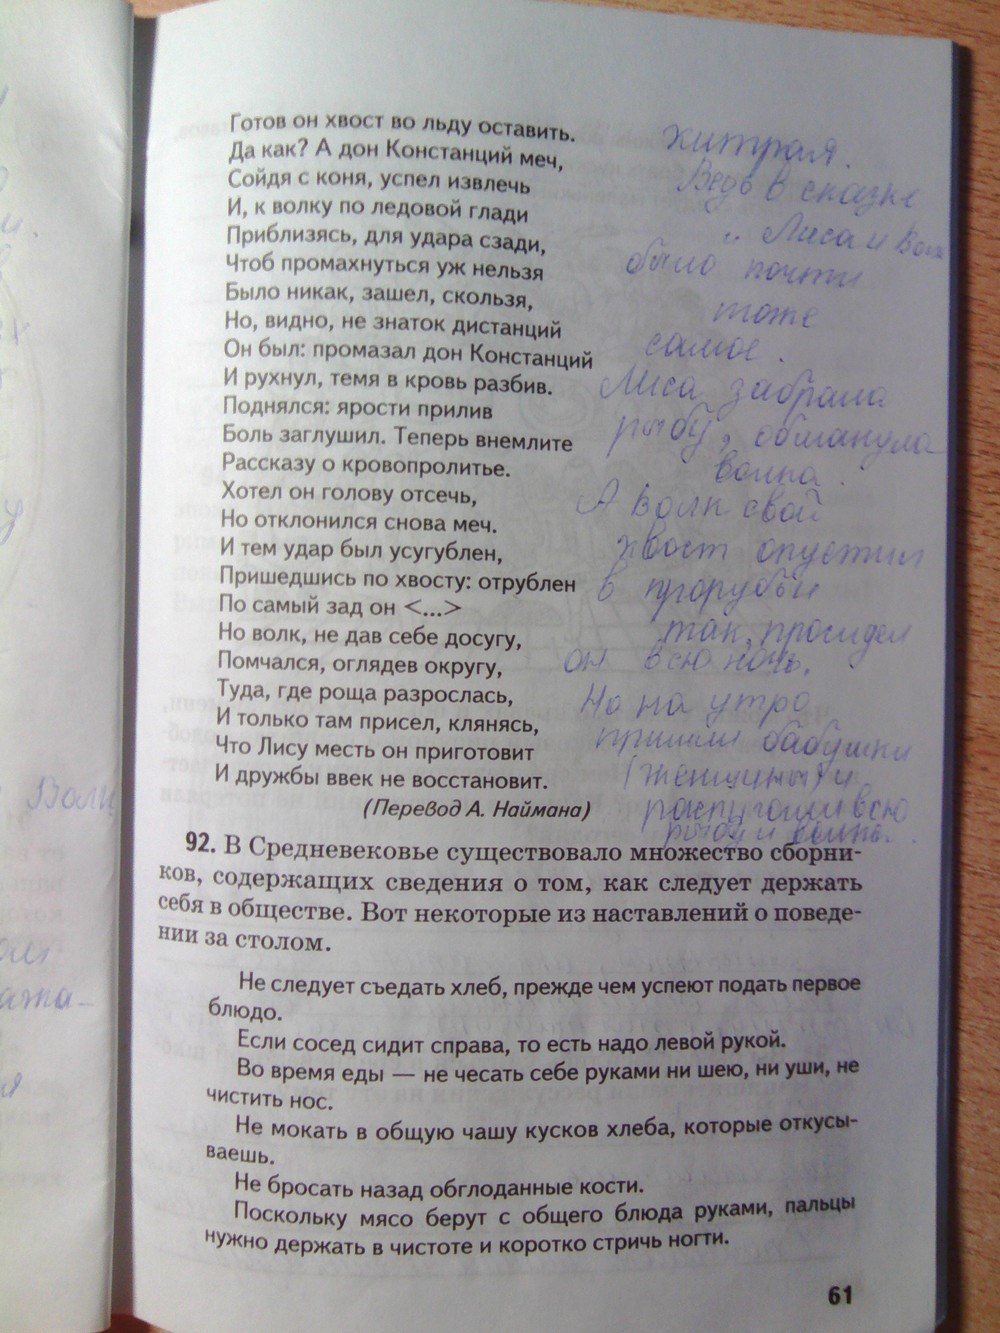 Готов он хвост во льду оставить.
Да как? А дон Констанций меч,
Сойдя с коня, успел извлечь
И, к волку по ледовой глади
Приблизясь, для удара сзади,
Чтоб промахнуться уж нельзя
Было никак, зашел, скользя,
Но, видно, не знаток дистанций
Он был: промазал дон Констанций
И рухнул, темя в кровь разбив.
Поднялся: ярости прилив
Боль заглушил. Теперь внемлите
Рассказу о кровопролитье.
Хотел он голову отсечь,
Но отклонился снова меч.
И тем удар был усугублен,
Пришедшись по хвосту: отрублен
По самый зад он <...>
Но волк, не дав себе досугу,
Помчался, оглядев округу,
Туда, где роща разрослась,
И только там присел, клянясь,
Что Лису месть он приготовит
И дружбы ввек не восстановит.
(Перевод А. Наймана)
хитрая.
Ведь в сказке
" Лиса и Волк
было почти
тоже
самое.
Лиса забрала
рыбу, обманула
волка.
А Волк свой
хвост опустил
в прорубь и
так, просидел
он всю ночь.
Но на утро
пришли бабушки
(женщины) и
распугали всю
рыбу и волка.
Волк
92. В Средневековье существовало множество сборни-
ков, содержащих сведения о том, как следует держать
себя в обществе. Вот некоторые из наставлений о поведе-
нии за столом.
Не следует съедать хлеб, прежде чем успеют подать первое
блюдо.
Если сосед сидит справа, то есть надо левой рукой.
Во время еды — не чесать себе руками ни шею, ни уши, не
чистить нос.
Не мокать в общую чашу кусков хлеба, которые откусы-
ваешь.
Не бросать назад обглоданные кости.
Поскольку мясо берут с общего блюда руками, пальцы
нужно держать в чистоте и коротко стричь ногти.
61